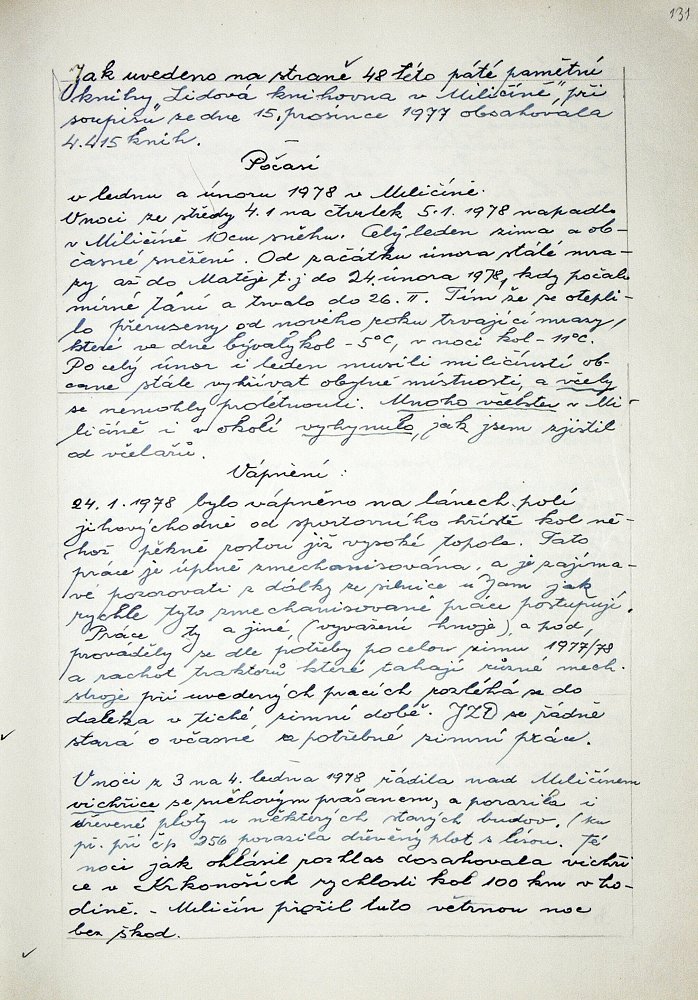 131
Jak uvedeno na straně 48 této páté pamětní
knihy „Lidová knihovna v Miličíně“, při
soupisu ze dne 15. prosince 1977 obsahovala
4.415 knih.
Počasí
v lednu a únoru 1978 v Miličíně.
V noci ze středy 4.1 na čtvrtek 5.1. 1978 napadlo
v Miličíně 10 cm sněhu. Celý leden zima a ob-
časné sněžení. Od začátku února stálé mra-
zy až do Matěje t.j. do 24. února 1978, kdy počalo
mírné tání a trvalo do 26. II. Tím že se otepli-
lo přerušeny od nového roku trvající mrazy,
které ve dne bývaly kol -5°C, v noci kol -11°C.
Po celý únor i leden musili miličínstí ob-
čané stále vyhřívat obytné místnosti, a včely
se nemohly prolétnouti. Mnoho včelstev v Mi-
ličíně i v okolí vyhynulo, jak jsem zjistil
od včelařů.
Vápnění:
24.1.1978 bylo vápněno na lánech polí
jihovýchodně od sportovního hřiště kol ně-
hož pěkně rostou již vysoké topole. Tato
práce je úplně zmechanisována, a je zajíma-
vé pozorovati z dálky ze silnice u Jam jak
rychle tyto zmechanisované práce postupují.
Práce ty a jiné, (vyvážení hnoje), a pod,
prováděly se dle potřeby po celou zimu 1977/78
a rachot traktorů které tahají různé mech.
stroje při uvedených pracích rozléhá se do
daleka v tiché zimní době. JZD se řádně
stará o včasné a potřebné zimní práce.
V noci z 3 na 4. ledna 1978 řádila nad Miličínem
vichřice se sněhovým prašanem, a porazila i
dřevěné ploty u některých starých budov. (ku
př. při čp 256 porazila dřevěný plot s lísou. Té
noci jak ohlásil rozhlas dosahovala vichři
ce v Krkonoších rychlosti kol 100 km v ho-
dině. - Miličín prožil tuto větrnou noc
bez škod.